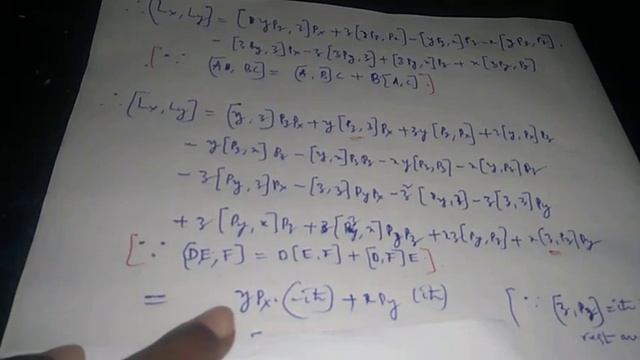 ∴ [Lx, Ly] = [yPz, z]Px + z[yPz, Px] - [yPz, x]Pz - x[yPz, Pz]
- [zPy, z]Px - z[zPy, Px] + [zPy, x]Pz + x[zPy, Pz]
[∵ [AB, BC] = [A, B]C + B[A, C]]
∴ [Lx, Ly] = [y, z]PzPx + y[Pz, z]Px + zy[Pz, Px] + z[y, Px]Pz
- y[Pz, x]Pz - [y, x]PzPz - xy[Pz, Pz] - x[y, Pz]Pz
- z[Py, z]Px - [z, z]PyPx - z² [Py, - z[z, ]Py
+ z[Py, x]Pz + [z, x]PyPz + xz[Py, Pz] + x[z, Pz]Py
[∵ [DE, F] = D[E, F] + [D, F]E]
= yPx·(-iħ) + xPy (iħ) [∵ [z, Pz] = iħ
rest are